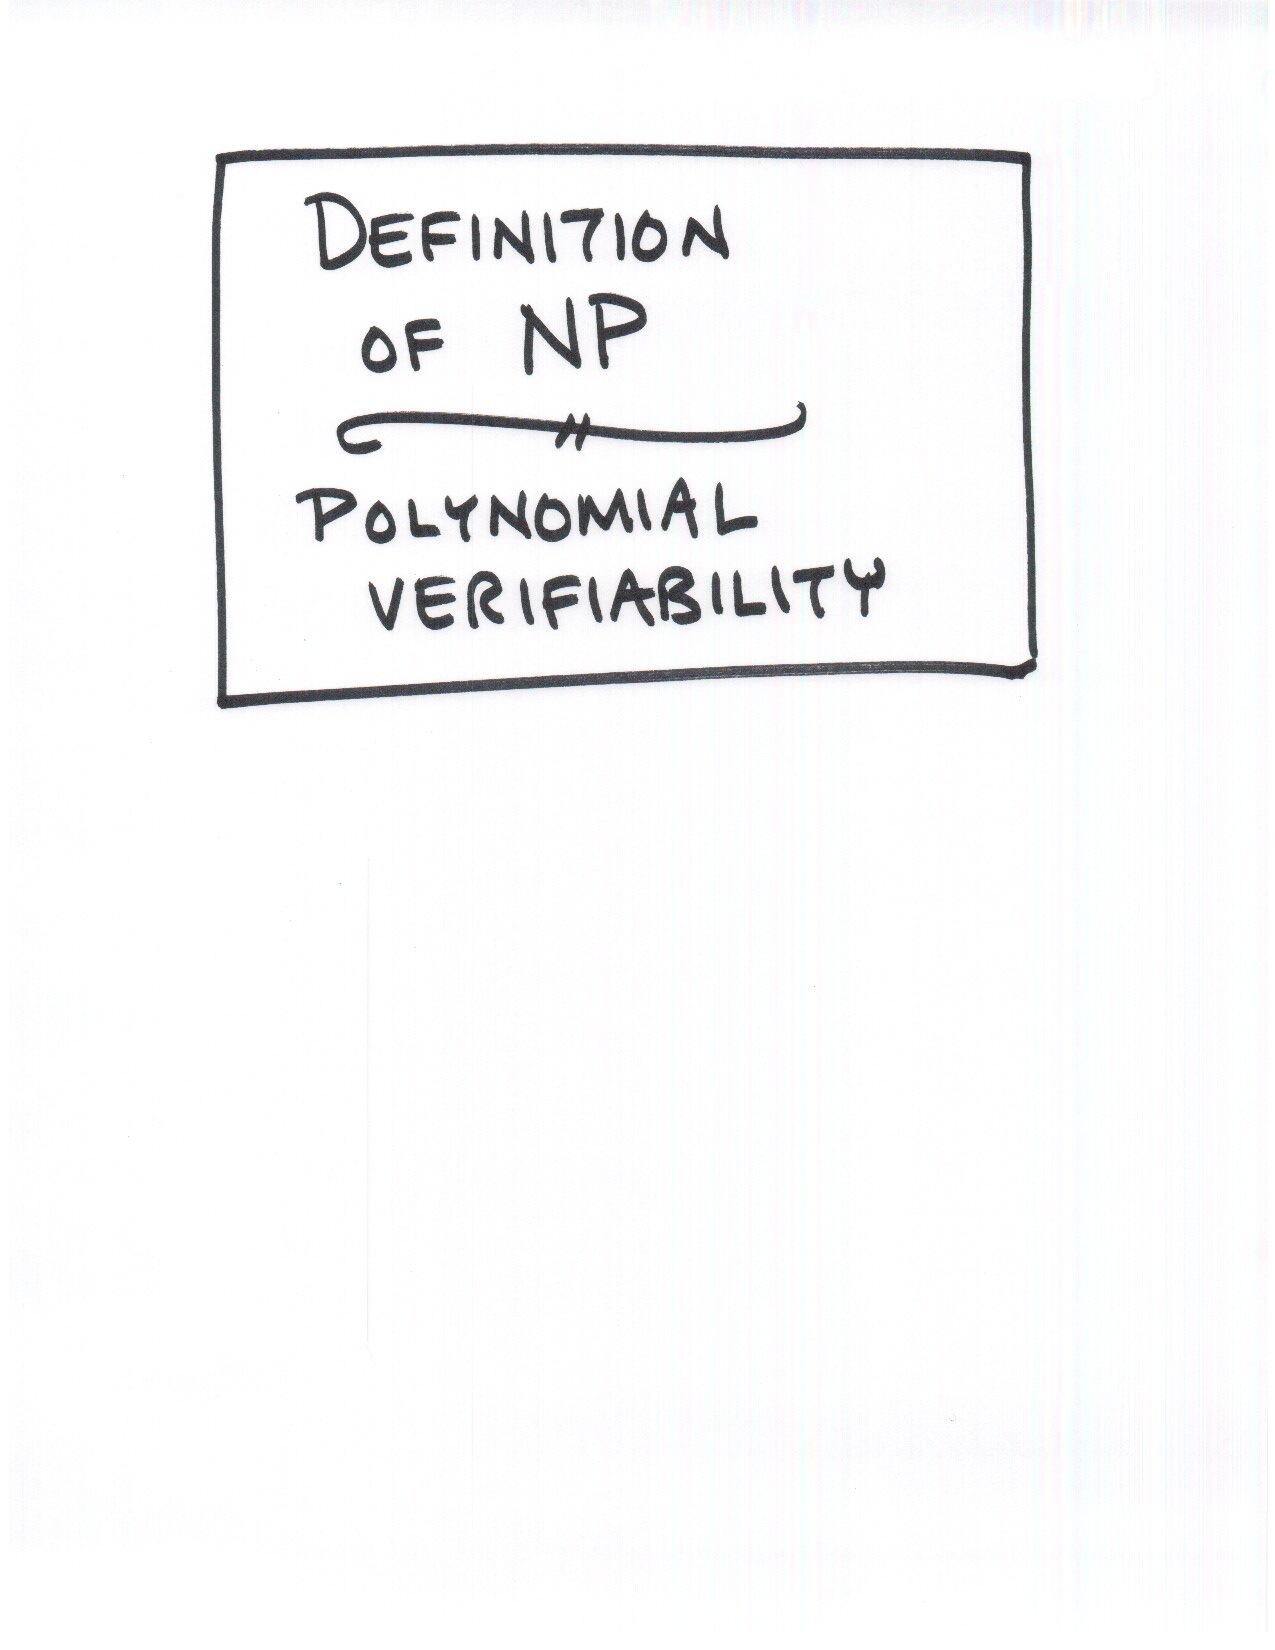 DEFINITION
OF NP
POLYNOMIAL
VERIFIABILITY